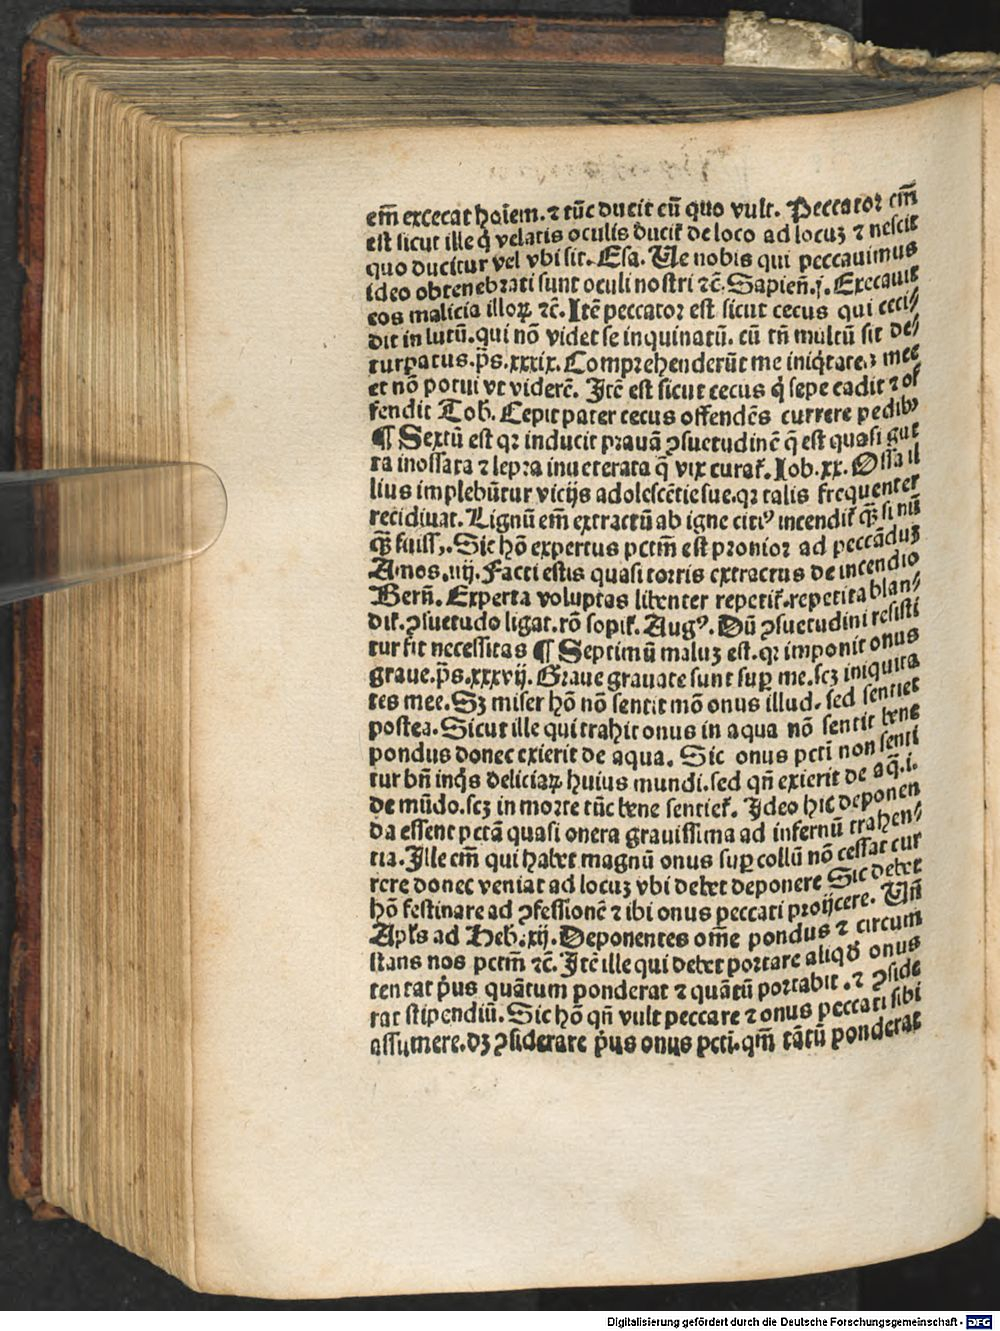 em̄ excecat hoīem. ⁊ tūc ducit cū quo vult. Peccator em̄
est sicut ille q̇ velatis oculis ducit᷑ de loco ad locuꝫ ⁊ nescit
quo ducitur vel vbi sit. Esa. Ue nobis qui peccauimus
ideo obtenebrati sunt oculi nostri ⁊c̄. Sapien̄.j. Excecauit
eos malicia illoꝝ ⁊c̄. Itē peccator est sicut cecus qui ceci⸗
dit in lutū. qui nō videt se inquinatū. cū tn̄ multū sit de⸗
turpatus. p̄s. xxxix. Comprehenderūt me iniq̇tates mee
et nō potui vt viderē. Itē est sicut cecus q̇ sepe cadit ⁊ of
fendit Tob. Cepit pater cecus offendēs currere pedibꝰ
¶ Sextū est qꝛ inducit prauā ꝯsuetudinē q̄ est quasi gut
ta inossata ⁊ lepra inueterata q̄ vix curat᷑. Iob. xx. Ossa il
lius implebūtur vicijs adolescētie sue. qꝛ talis frequenter
recidiuat. Lignū em̄ extractū ab igne citiꝰ incendit᷑ qꝫ̄ si nū
qꝫ̄ fuiss₃. Sic hō expertus pctm̄ est pronior ad peccāduꝫ
Amos. iiij. Facti estis quasi torris extractus de incendio
Bern̄. Experta voluptas libenter repetit᷑. repetita blan⸗
dit᷑. ꝯsuetudo ligat. rō sopit᷑. Augꝰ. Dū ꝯsuetudini resisti
tur fit necessitas ¶ Septimū maluꝫ est. qꝛ imponit onus
graue. p̄s. xxxvij. Graue grauate sunt suꝑ me. scꝫ iniquita
tes mee. Sꝫ miser hō nō sentit mō onus illud. sed sentiet
postea. Sicut ille qui trahit onus in aqua nō sentit bene
pondus donec exierit de aqua. Sic onus pcti non senti
tur bn̄ inq̇s deliciaꝝ huius mundi. sed qn̄ exierit de aq̄. i.
de mūdo. scꝫ in morte tūc bene sentiet᷑. Ideo hic deponen
da essent pctā quasi onera grauissima ad infernū trahen⸗
tia. Ille em̄ qui habet magnū onus suꝑ collū nō cessat cur
rere donec veniat ad locuꝫ vbi debet deponere Sic debet
hō festinare ad ꝯfessionē ⁊ ibi onus peccati proijcere. Un̄
Apl̄s ad Heb. xij. Deponentes om̄e pondus ⁊ circum
stans nos pctm̄ ⁊c̄. Itē ille qui debet portare aliqḋ onus
tentat pͥus quātum ponderat ⁊ quātū portabit. ⁊ ꝯside
rat stipendiū. Sic hō qn̄ vult peccare ⁊ onus peccati sibi
assumere. dꝫ ꝯsiderare pͥus onus pcti. qm̄ tātū ponderat
Digitalisierung gefördert durch die Deutsche Forschungsgemeinschaft - DFG